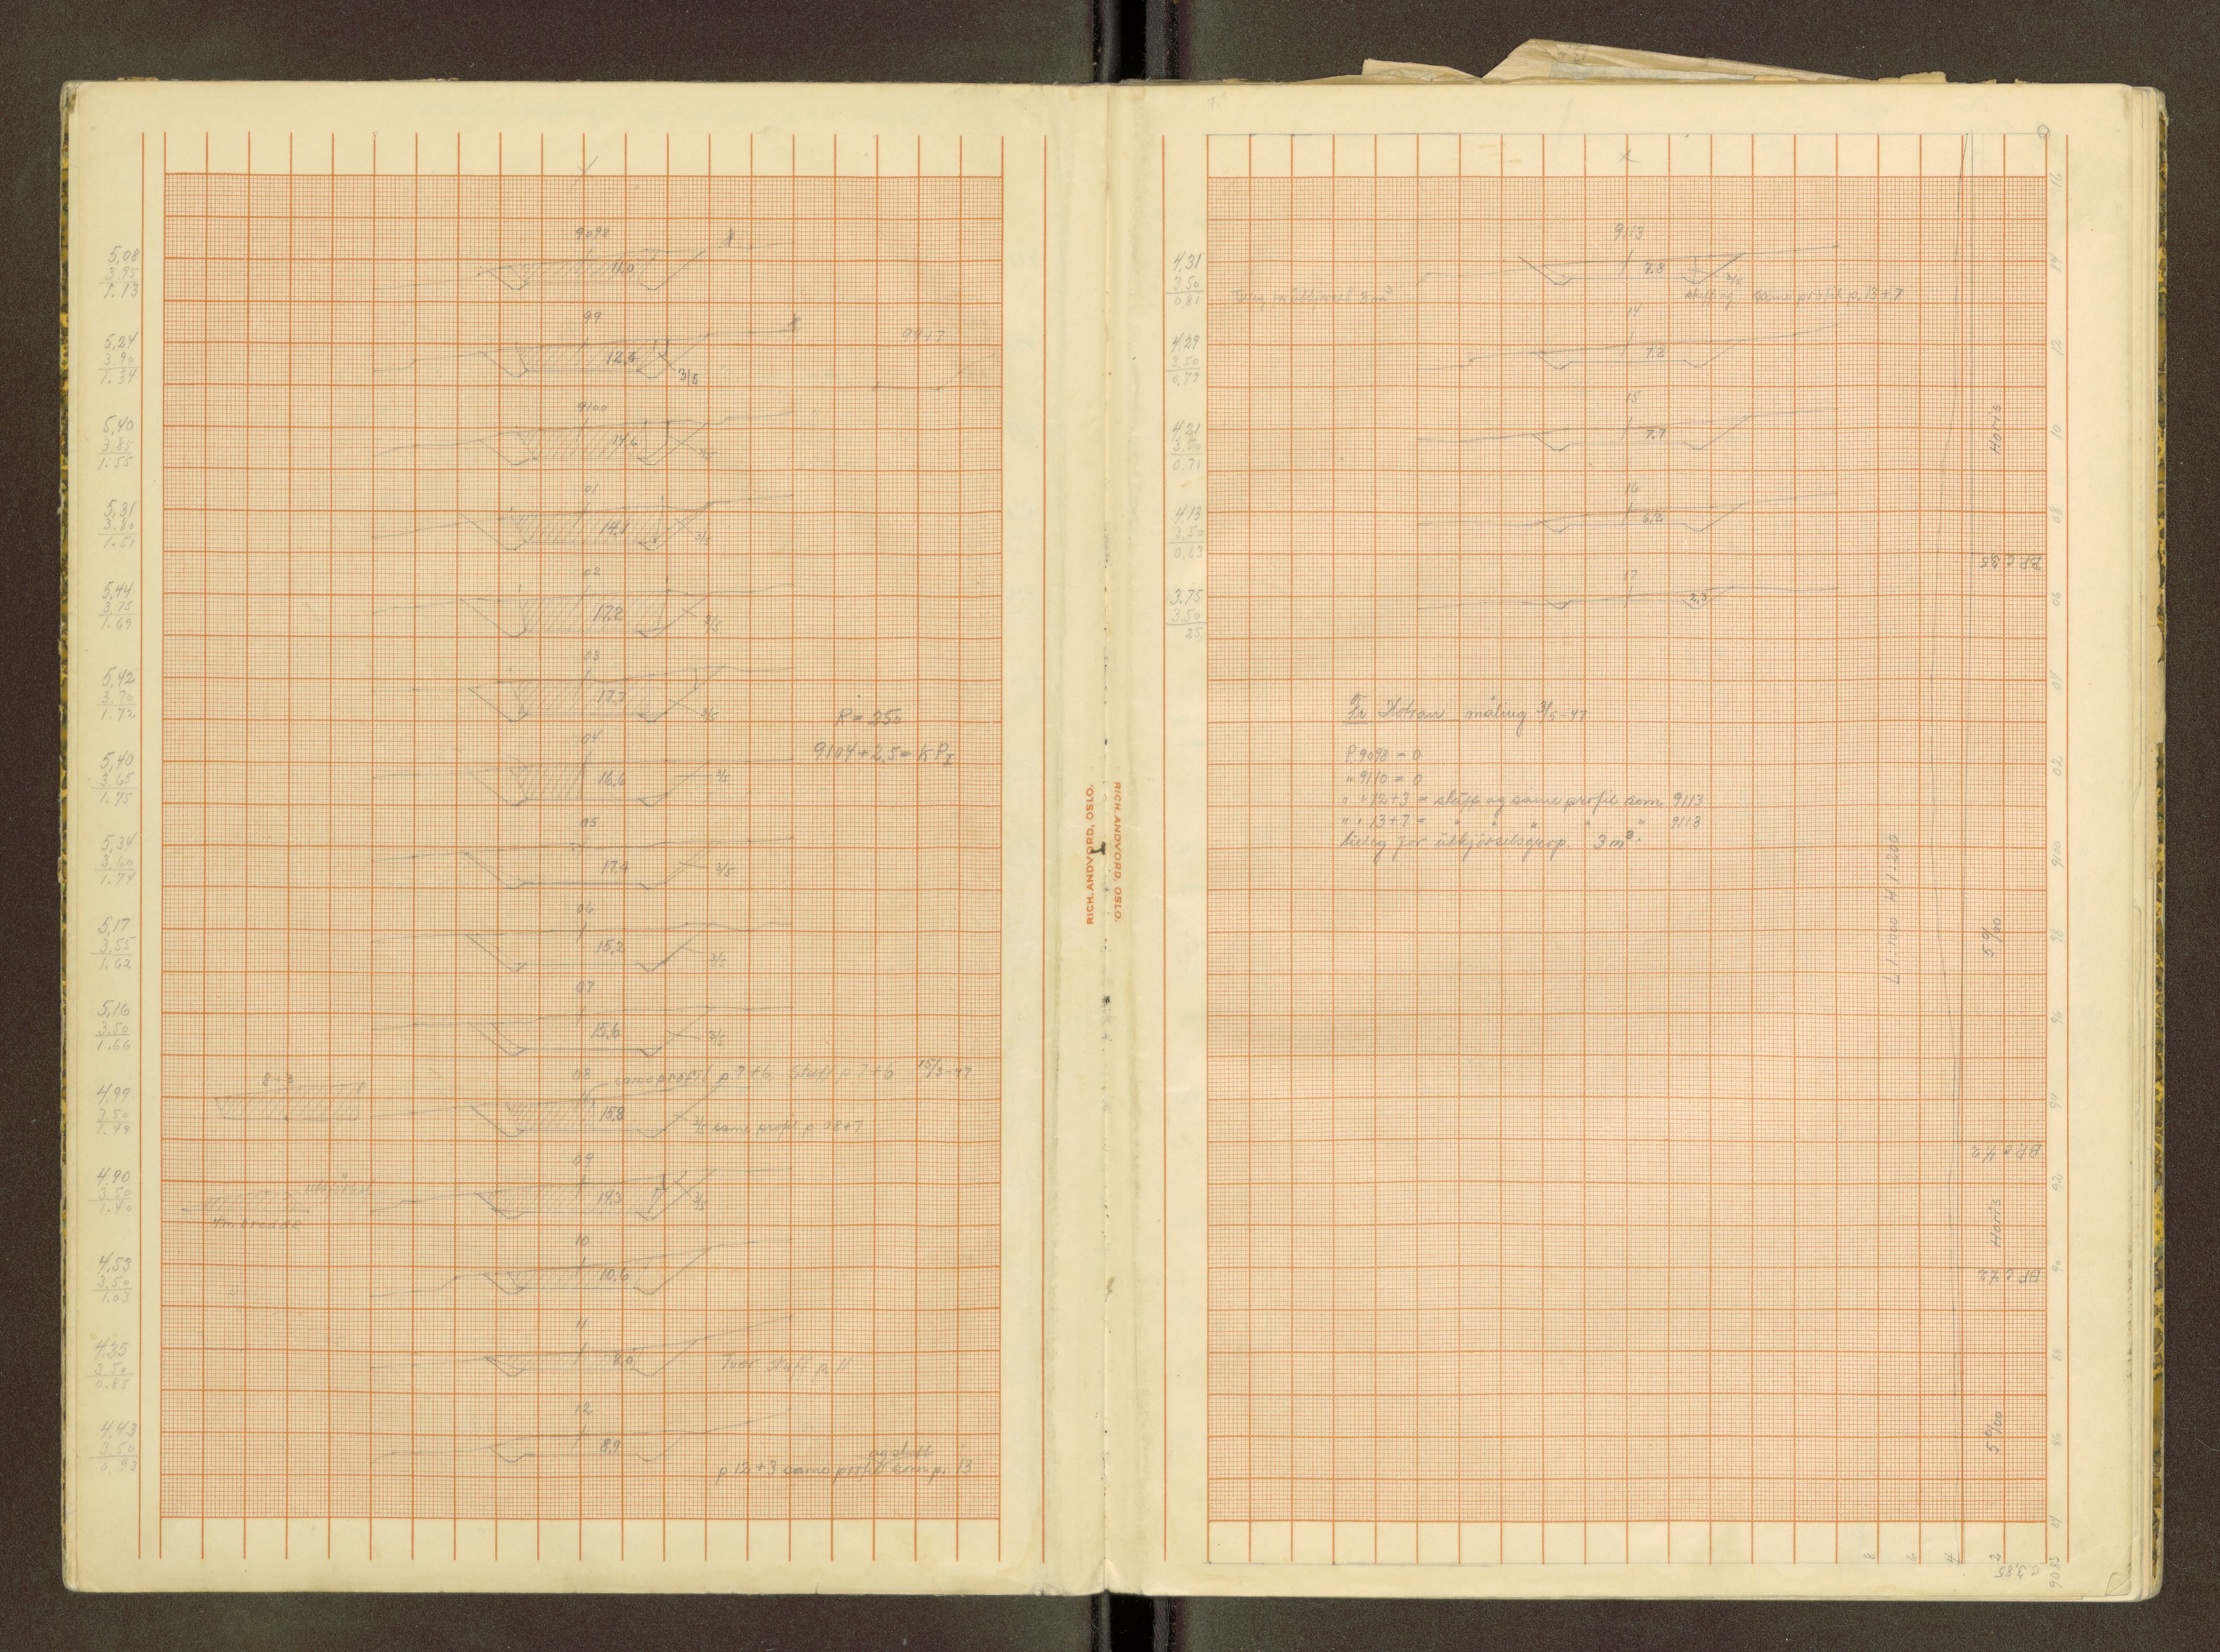 9098
5,08
3.95
1.13
11,0
99
5,24
3.90
1.34
12,4
3/5
99+7
9100
5,40
3.85
1.55
14,6
3/5
01
5,31
3.80
1.51
14,1
3/5
02
5,44
3.75
1.69
17,2
3/5
03
5,42
3.70
1.72
17,7
3/5
P = 250
04
5,40
3.65
1.75
16,6
3/5
9104+2,5 = KP I
05
5,34
3.60
1.74
17,4
3/5
06
5,17
3.55
1.62
15,2
3/5
07
5,16
3.50
1.66
15,6
3/5
08
same profil p. 7+6 Stuff p. 7+6 15/3-47
8+3
4,99
3.50
1.49
15,8
3/5 same profil p 08+7
09
4,90
3.50
1.40
14,3
3/5
utkjørsel
4m. bredde
10
4,53
3.50
1.03
10,6
11
4,35
3.50
0.85
8,0
Tver stuff p. 11
12
4,43
3.50
0,93
8,9
og stuff
p 12+3 same profil som p. 13
RICH. ANDVORD, OSLO.
RICH. ANDVORD, OSLO.
9113
4,31
3.50
0.81
7,8
3/5
utkjørsel 3 m³
stuff og same profil p. 13+7
14
4,29
3.50
0.79
7,2
15
4,21
3.50
0.71
7,7
16
4,13
3.50
0.63
6,2
17
3.75
3.50
25
2,3
Fr Hovan måling 3/5-47
P. 9098 = 0
" 9110 = 0
" +12+3 = stuff og same profil som 9113
" " 13+7 = " " " " " 9113
tileg for utkjørselsgrop. 3 m³.
L 1:1000 H 1:200
Horis
BP. c 3,5
5 ‰
BP. c 4,2
Horis
BP c 4,2
5 ‰
16
14
12
10
08
06
04
02
9100
98
96
94
92
90
88
86
84
9083
8
6
4
2
c 3,85